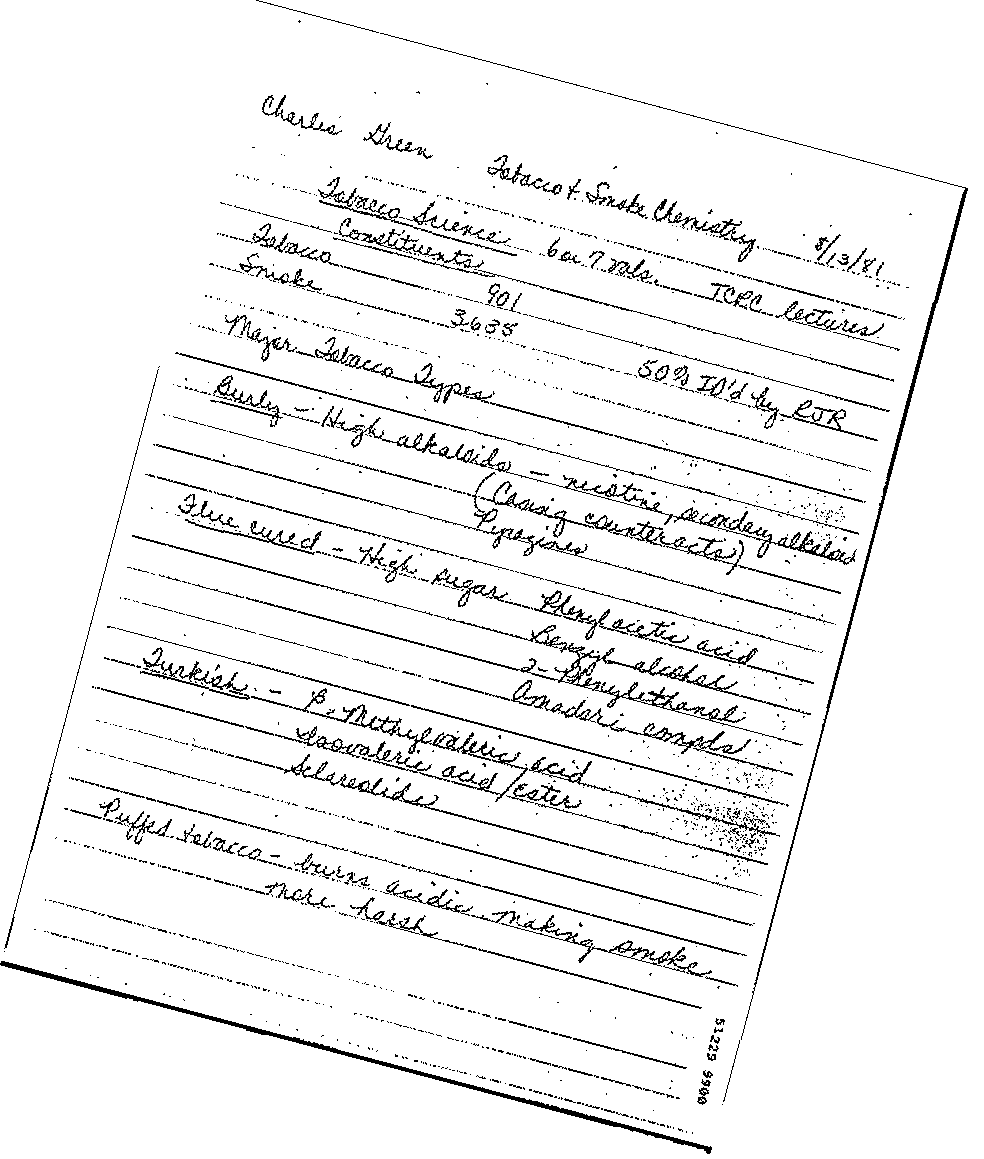 Charles Green Tobacco & Smoke Chemistry 8/13/81
Tobacco Science 6 or 7 vols. TCRC lectures
Constituents
Tobacco 901
Smoke 3635 50% ID'd by RJR
Major Tobacco Types
Burly - High alkaloids - nicotine, secondary alkaloid
(Casing counteracts)
Pyrazines
Flue cured - High sugar Phenylacetic acid
Benzyl alcohol
2-Phenylethanol
Amadori compds
Turkish - β-Methylvaleric acid
Isovaleric acid/ester
Sclareolide
Puffed tobacco - burns acidic making smoke
more harsh
51229 9900